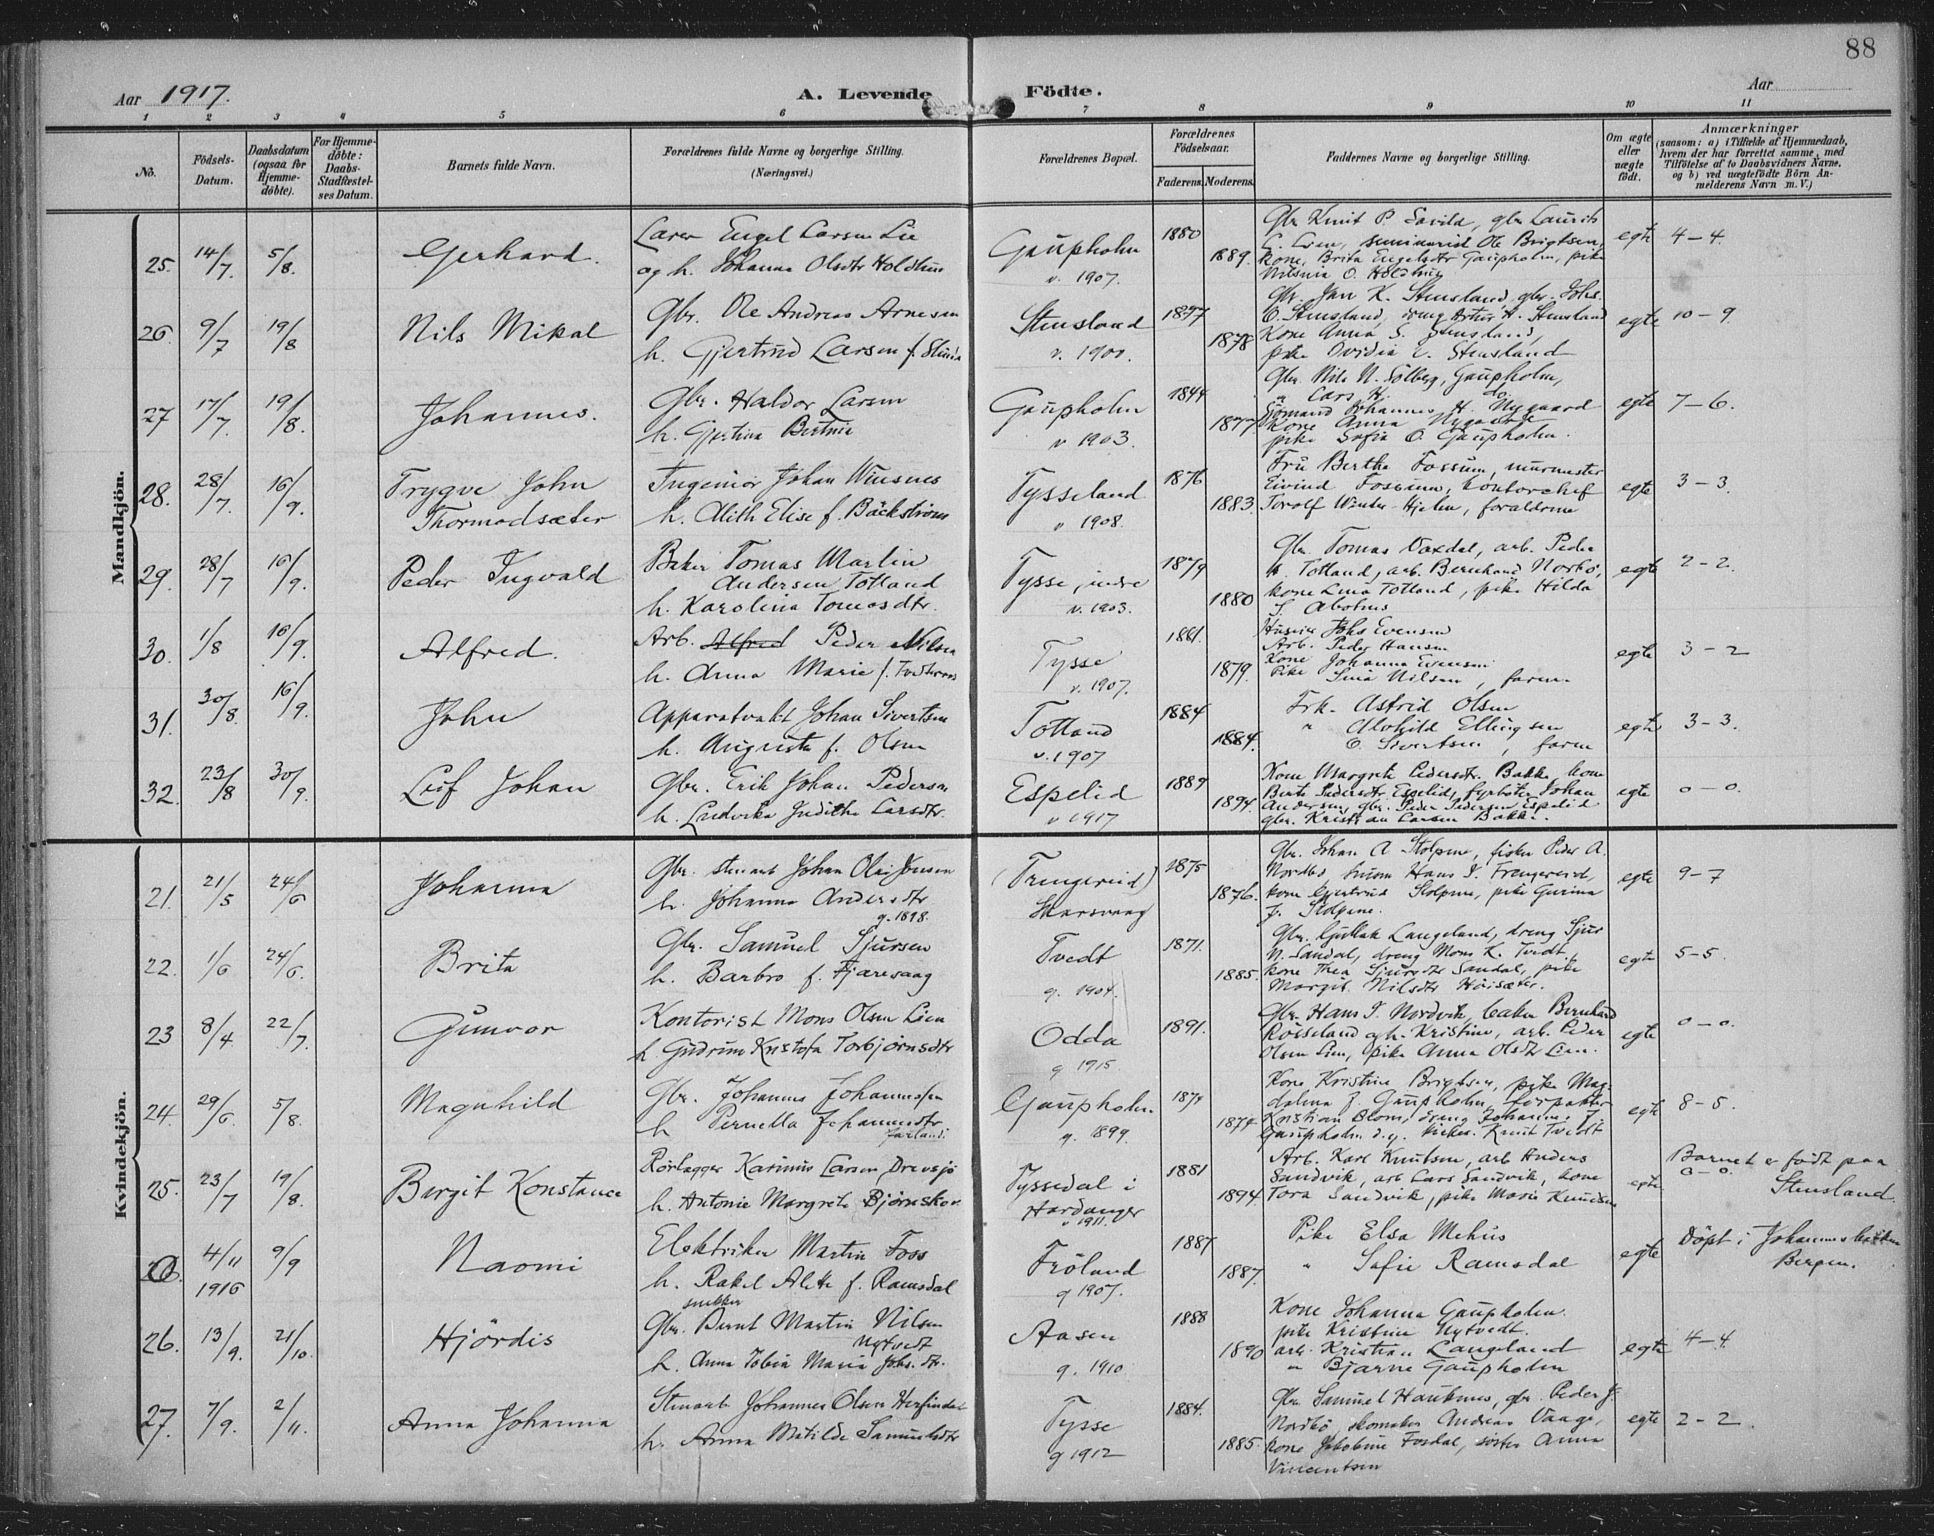 88
Aar 1917.
A. Levende Födte.
Aar
1 2 3 4 5 6 7 8 9 10 11
No.
Födsels-Datum.
Daabsdatum (ogsaa for Hjemme-döbte).
For Hjemme-döbte: Daabs-Stadfæstel-ses Datum.
Barnets fulde Navn.
Forældrenes fulde Navne og borgerlige Stilling.
(Næringsvei.)
Forældrenes Bopæl.
Forældrenes Födselsaar.
Faderens. Moderens.
Faddernes Navne og borgerlige Stilling.
Om ægte eller uægte födt.
Anmærkninger
(saasom: a) i Tilfælde af Hjemmedaab, hvem der har forrettet samme, med Tilföielse af to Daabsvidners Navne, og b) ved uægtefödte Börn An-melderens Navn m. V.)
Mandkjön.
25. 14/7. 5/8. Gerhard.
Engel Larsen Lie
og h. Johanna Olsdtr Holdhus
Gaupholm
v. 1907.
1880 1889.
Gbr Knut P Sævild, gbr Laurits
Lien, Ole Brigtsen,
kone, Brita Engelsdtr Gaupholm, pike
Nilsina O. Holdhus
egte 4-4.
26. 9/7 19/8 Nils Mikal
Gbr. Ole Andreas Arnesen
h. Gjertrud Larsen f.
Stensland
v. 1900.
1878
Gbr. Jan K. Stensland, gbr. Johs.
O. Stensland, dreng Artur A. Stensland
Kone Anna S. Stensland,
pike Ovidia Stensland
egte 10-9
27 17/7. 19/8. Johannes.
Gbr. Haldor Larsen
h. Gjertina Bertine
Gaupholm
v 1903.
1877
Gbr. Nils N. Solberg, Gaupholm,
" Lars H. do.
Johannes H. Nygaard
Kone Anna Nygaard
pike Sofia O. Gaupholm.
egte 7-6.
28. 28/7. 16/9. Trygve John
Thormodsæter
Ingeniør Johan Wiusnes
h. Alith Elise f. Bäckström
Tysseland
v 1908.
1876 1883.
Fru Berthe Fossum, murmester
Eivind Fossum, kontorchef
Torolf Winter-Hjelm, forældrene
egte 3-3.
29. 28/7 16/9. Peder Ingvald
Baker Tomas Martin
Andersen Totland
h. Karolina Tomasdtr.
Tysse, indre
v. 1903.
1879 1880
Gbr Tomas Vaxdal, arb. Peder
Totland, arb. Bernhard Nordbø,
kone Lina Totland, pike Hilda
egte 2-2.
30. 1/8 16/9. Alfred.
Arb. Alfred Peder Nilsen
h. Anna Marie f.
Tysse
v. 1907.
1881. 1879.
Johs Evensen
Arb. Peder Hansen
Kone Johanna Evensen
Pike Sina Nilsen, faren.
egte 3-2
31. 30/8. 16/9. John
Apparatvakt Johan Sivertsen
h. Augusta f. Olsen
Totland
v. 1907
1884 1884.
Frk. Astrid Olsen
" Alvhild Ellingsen
O. Sivertsen, faren
egte 3-3.
32. 23/8 30/9. Leif Johan
Gbr. Erik Johan Pedersen
h. Ludvika Juditha Larsdtr.
Espelid
v 1917
1889 1894
Kone Margrete Pedersdtr. Bakke, kone
Berta Pedersdtr Espelid, fyrbøter Johan
Andersen, gbr. Peder Pedersen Espelid
gbr. Kristian Larsen Bakke.
egte 0-0.
Kvindekjön.
21. 21/5 24/6 Johanna
Gbr. Johan Olai Jensen
h. Johanna Andersdtr
g. 1898.
(Trengereid)
Skarsvaag
1875 1876.
Gbr. Johan A Stolpene, fisker Peder A.
Nordbø, Hans J. Trengereid,
kone Gjertrud Stolpene, pike Gurina
J. Stolpene.
egte 9-7
22. 1/6 24/6. Brita
Gbr. Samuel Sjursen
h. Barbro f. Fjæresaag
Tvedt
g. 1904.
1871. 1885.
Gbr. Gullak Langeland, dreng Sjur
N. Sandal, dreng Mons K. Tvedt,
kone Thea Sjursdtr Sandal, pike
Margit Nilsdtr Høisæter.
egte 5-5.
23 8/4 22/7. Gunvor
Kontorist Mons Olsen Lien
h Gudrun Kristofa Torbjørnsdtr
Odda
g 1915.
1891.
Gbr. Hans J. Nordvik, baker Bernhard
Røsseland og h. Kristine, arb. Peder
Olsen Lien, pike Anna Olsdtr Lien.
egte 0-0.
24. 29/6. 5/8. Magnhild
Gbr. Johannes Johannessen
h Pernella Johannesdtr
Gaupholm.
g. 1899.
1874 1874
Kone Kristine Brigtsen, pike Mag-
dalena J. Gaupholm, forpakter
Kristian Blom, dreng Johannes J.
Gaupholm d.y. Knut Tvedt
egte 8-5.
25. 23/7 19/8. Birgit Konstance
Rørlægger Kasimir Larsen Drevsjø
h. Antonie Margrete Bjørnskar
Tyssedal i
Hardanger
v 1911.
1881 1894
Arb. Karl Knutsen, arb Anders
Sandvik, arb Lars Sandvik, kone
Tora Sandvik, pike Marie Knudsen
egte 0-0.
Barnet er født paa
Stensland.
4/11 1916 9/9 Naomi
Elektriker Martin Foss
h. Rakel Alette f. Ramsdal
Fröland
g 1907.
1887 1887.
Pike Elsa Mehus
" Sofie Ramsdal
egte
Döpt i Johanneskirken
Bergen.
26. 13/9. 21/10. Hjördis
snekker
Gbr. Bernt Martin Nilsen
Nytvedt
h. Anna Tobia Maria Johs. dtr.
Aasen
g. 1910.
1888 1890
Kone Johanna Gaupholm.
pike Kristine Nytvedt.
arb. Kristian Langeland
" Bjarne Gaupholm
egte 4-4.
27. 7/9. 2/11. Anna Johanna
Stenarb Johannes Olsen Herfindal
h. Anna Matilde Samuelsdtr
Tysse
g 1912
1884. 1885.
Gbr Samuel Hauknes, gbr. Peder J.
Nordbø skomaker Andreas Vaage,
kone Jakobine Fosdal, søster Anna
Vincentsen
egte 2-2.